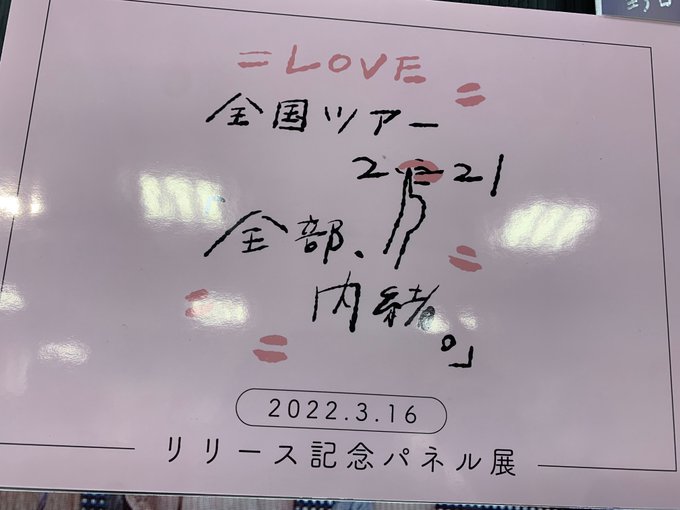 =LOVE
全国ツアー
2021
全部、
内緒。」
2022.3.16
リリース記念パネル展